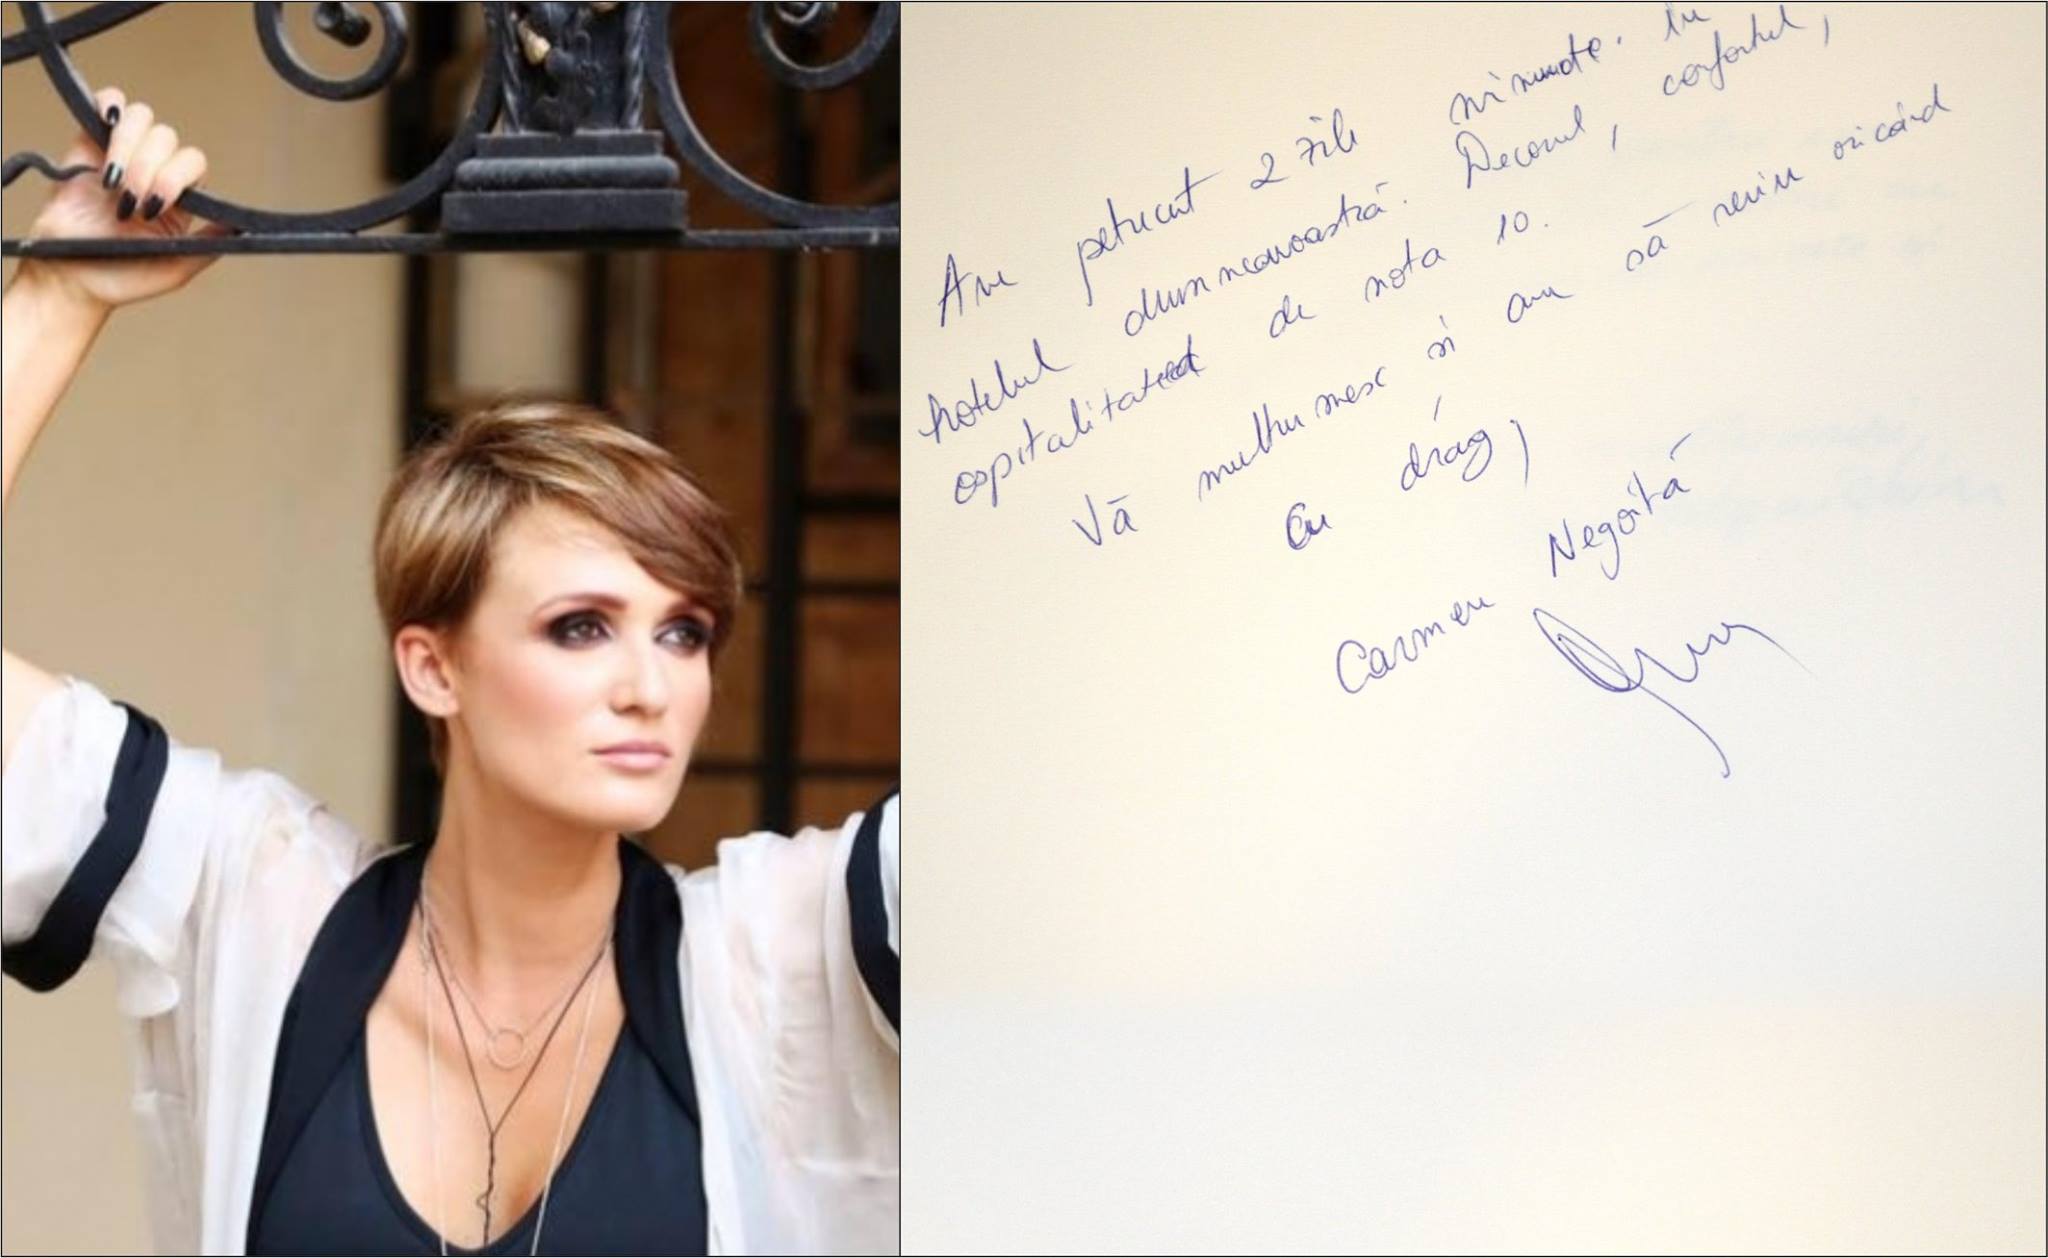 Am petrecut 2 zile minunate. In
hotelul dumneavoastră. Decorul, confortul,
ospitalitatea de nota 10.
Vă multumesc si am să revin oricând
Cu drag,
Carmen Negoită